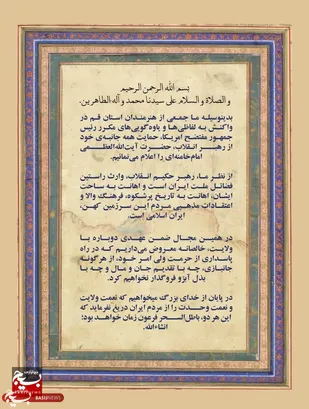 بسم الله الرحمن الرحیم
و الصلاة و السلام علی سیدنا محمد و آله الطاهرین.
بدینوسیله ما جمعی از هنرمندان استان قم در
واکنش به لفاظی‌ها و یاوه‌گویی‌های مکرر رئیس
جمهور مفتضح آمریکا، حمایت همه جانبه‌ی خود
از رهبر انقلاب، حضرت آیت‌الله‌العظمی
امام‌خامنه‌ای را اعلام می‌نمائیم.
از نظر ما، رهبر حکیم انقلاب، وارث راستین
فضائل ملت ایران است و اهانت به ساحت
ایشان، اهانت به تاریخ پرشکوه، فرهنگ والا و
اعتقادات مذهبی مردم این سرزمین کهن،
ایران اسلامی است.
در همین مجال ضمن عهدی دوباره با
ولایت، خالصانه معروض می‌داریم که در راه
پاسداری از حرمت ولی امر خود، از هرگونه
جانبازی، چه با تقدیم جان و مال و چه با
بذل آبرو فروگذار نخواهیم کرد.
در پایان از خدای بزرگ میخواهیم که نعمت ولایت
و نعمت وحدت را از مردم ایران دریغ نفرماید که
این هر دو، باطل‌السحر فرعون زمان خواهد بود؛
انشاءالله.
بسیج
BASIJNEWS